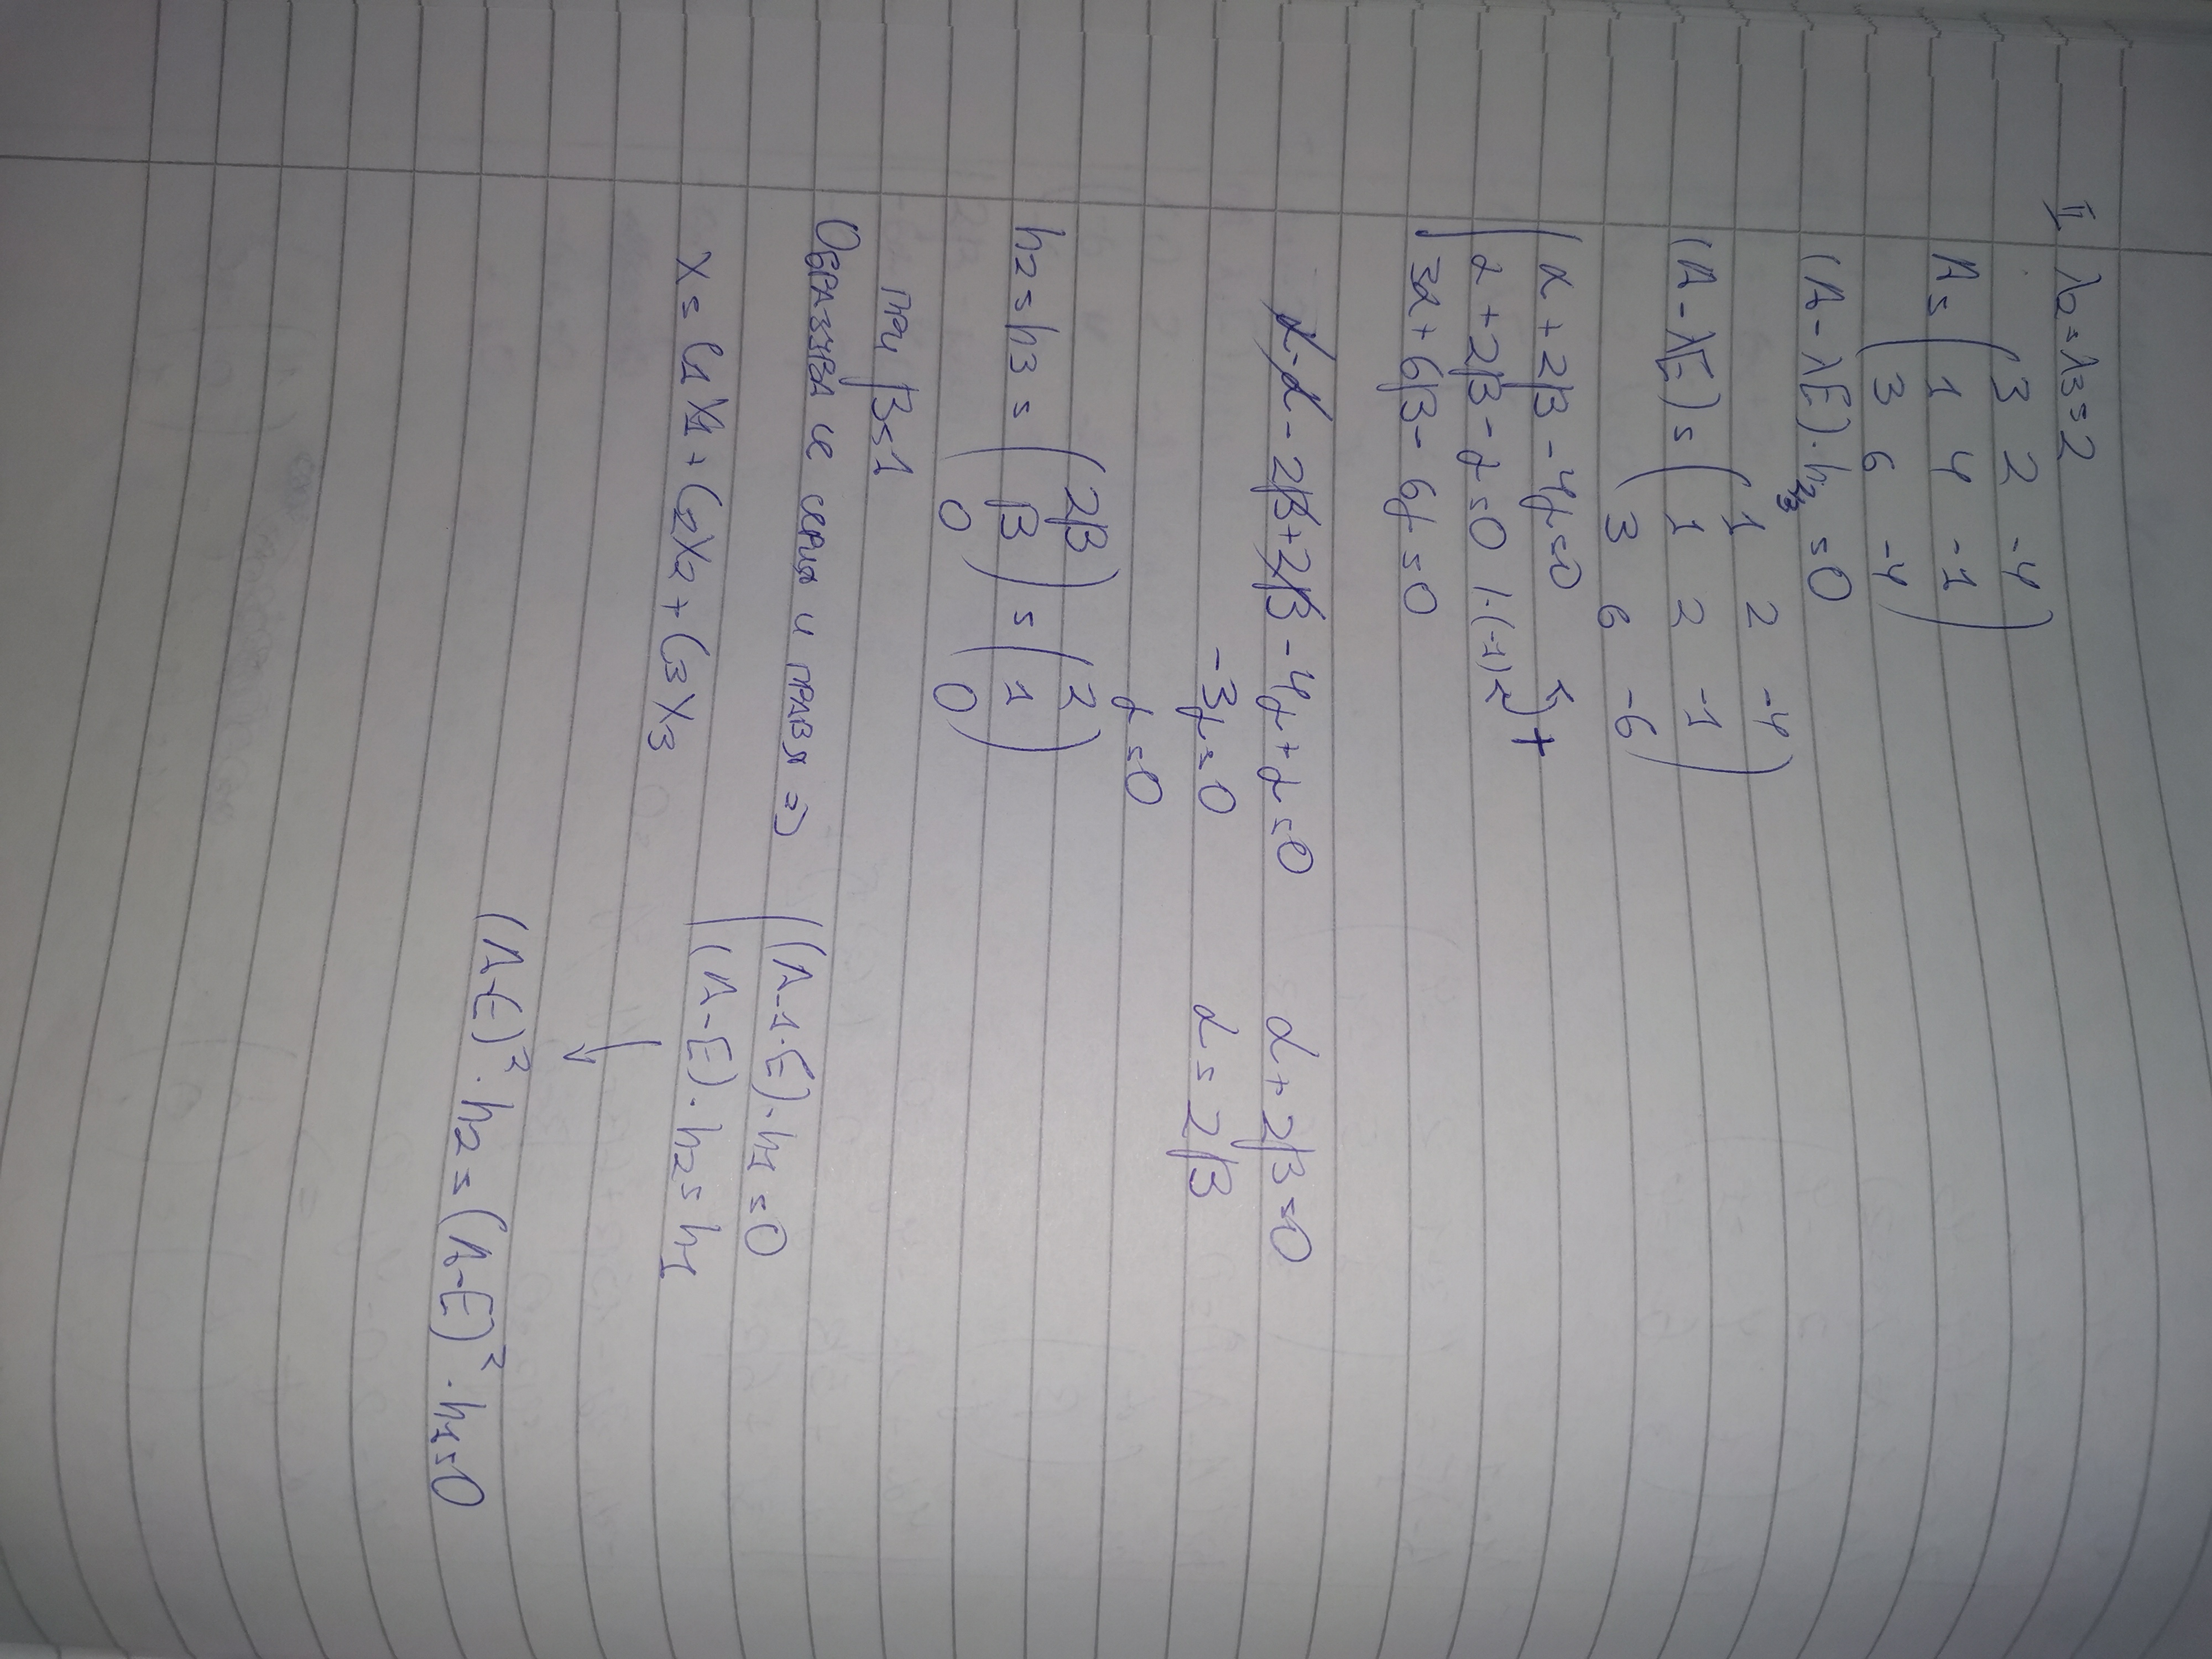 II λ2=λ3=2
A= (3 2 -4
1 4 -1
3 6 -4)
(A-λE).h2,3 =0
(A-λE)= (1 2 -4
1 2 -1
3 6 -6)
α+2β-4γ=0
α+2β-γ=0 /.(-1) +
3α+6β-6γ=0
α-α-2β+2β-4γ+γ=0 α+2β=0
-3γ=0 α=2β
γ=0
h2=h3= (2β
β
0) = (2
1
0)
при β=1
Образува се серия и правя => (A-1.E).h1=0
(A-E).h2=h1
x=C1X1+C2X2+C3X3
(A-E)².h2=(A-E)².h1=0